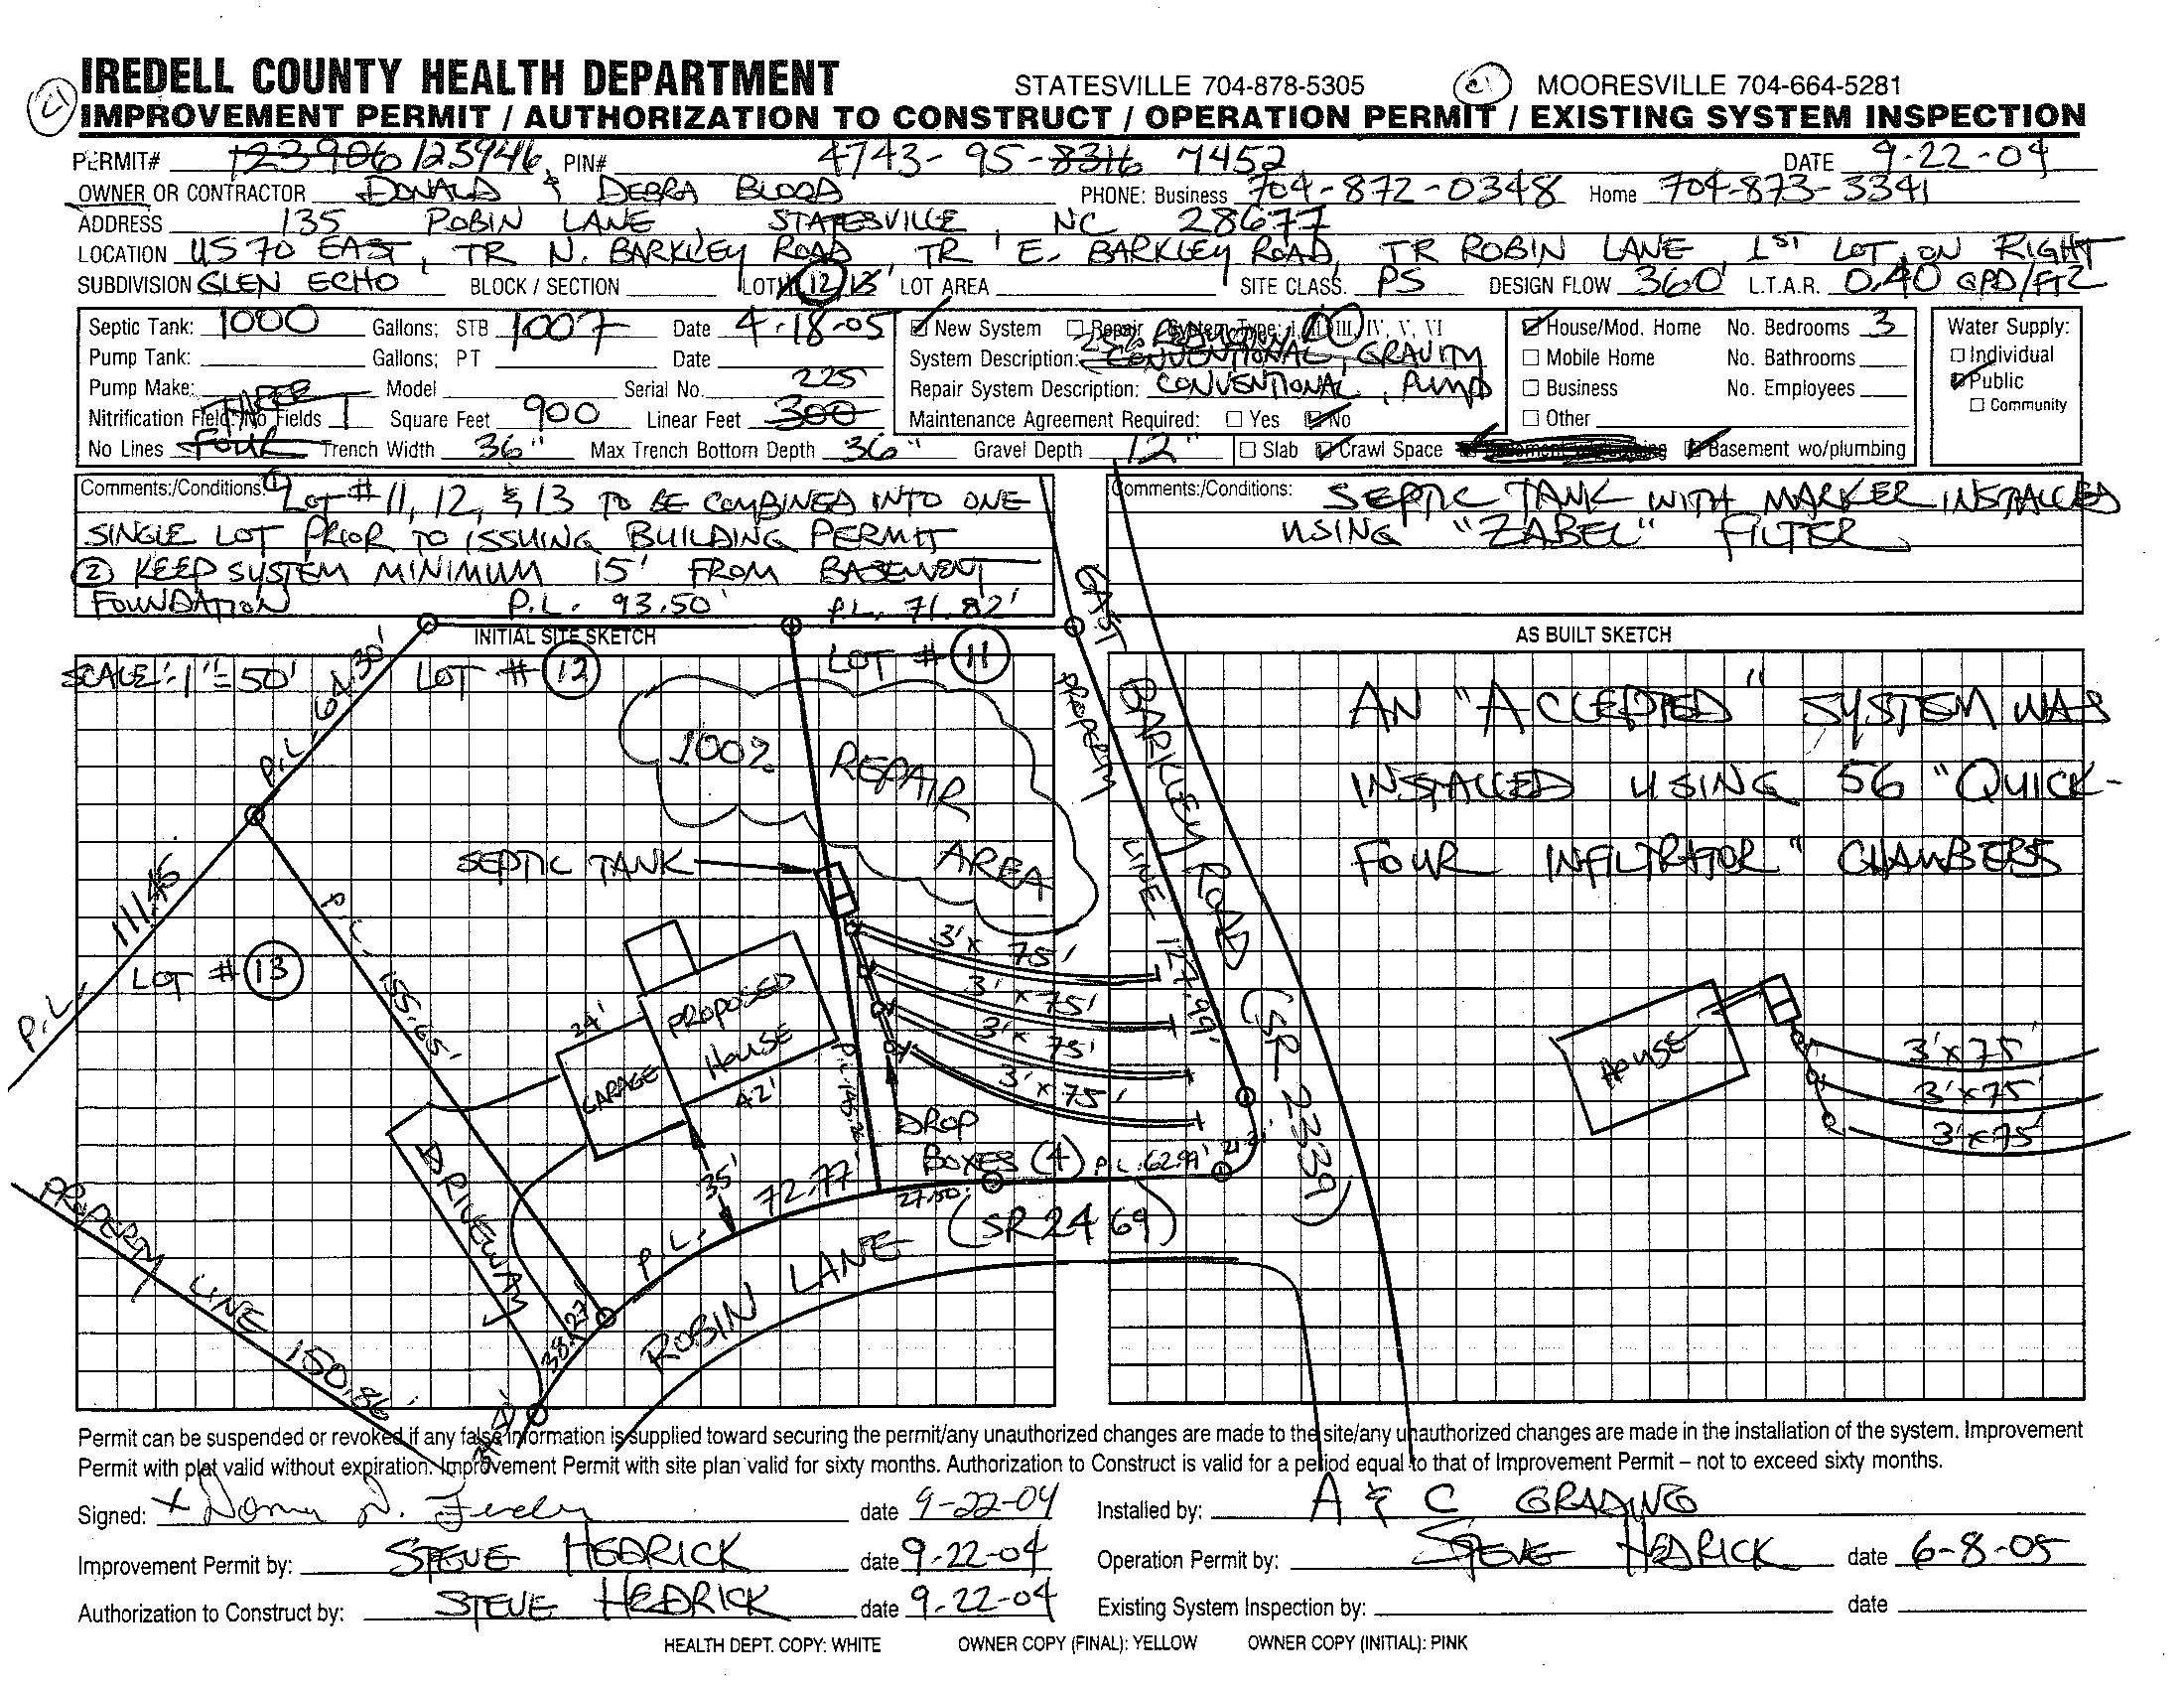 IREDELL COUNTY HEALTH DEPARTMENT STATESVILLE 704-878-5305 MOORESVILLE 704-664-5281
IMPROVEMENT PERMIT / AUTHORIZATION TO CONSTRUCT / OPERATION PERMIT / EXISTING SYSTEM INSPECTION
PERMIT# 123906 123946 PIN# 4743-95-8316 7452 DATE 9-22-04
OWNER OR CONTRACTOR DONALD & DEBRA BLOOD PHONE: Business 704-872-0348 Home 704-873-3341
ADDRESS 135 ROBIN LANE, STATESVILLE, NC 28677
LOCATION US 70 EAST, TR N. BARKLEY ROAD, TR E. BARKLEY ROAD, TR ROBIN LANE, 1ST LOT ON RIGHT
SUBDIVISION GLEN ECHO BLOCK / SECTION LOT# 12 13 LOT AREA SITE CLASS. PS DESIGN FLOW 360 L.T.A.R. 0.40 GPD/FT2
Septic Tank: 1000 Gallons; STB 1007 Date 4-18-05 New System Repair System Type: I, II, III, IV, V, VI House/Mod. Home No. Bedrooms 3 Water Supply:
Pump Tank: Gallons; PT Date System Description: 25% REDUCTION CONVENTIONAL, GRAVITY Mobile Home No. Bathrooms Individual
Pump Make: Model Serial No. Repair System Description: CONVENTIONAL, PUMP Business No. Employees Public
THREE 225
Nitrification Field: No Fields 1 Square Feet 900 Linear Feet 300 Maintenance Agreement Required: Yes No Other Community
No Lines FOUR Trench Width 36" Max Trench Bottom Depth 36" Gravel Depth 12" Slab Crawl Space Basement wo/plumbing
Comments:/Conditions: ① LOT # 11, 12, & 13 TO BE COMBINED INTO ONE
SINGLE LOT PRIOR TO ISSUING BUILDING PERMIT
② KEEP SYSTEM MINIMUM 15' FROM BASEMENT
FOUNDATION
Comments:/Conditions: SEPTIC TANK WITH MARKER INSTALLED
USING "ZABEL" FILTER
P.L. 93.50' P.L. 71.82'
INITIAL SITE SKETCH
AS BUILT SKETCH
SCALE: 1"=50'
P.L. 64.30'
LOT # 12
LOT # 11
100% REPAIR AREA
EAST BARKLEY ROAD (SR 2339)
PROPERTY LINE 127.99'
SEPTIC TANK
P.L. 111.46
LOT # 13
P.L. 155.65'
24'
GARAGE
PROPOSED HOUSE
42'
3' x 75'
3' x 75'
3' x 75'
3' x 75'
DROP BOXES (4)
P.L. 62.99'
27.50'
35'
P.L. 72.77'
DRIVEWAY
ROBIN LANE (SR 2469)
38.27'
PROPERTY LINE 150.86'
AN "ACCEPTED" SYSTEM WAS
INSTALLED USING 56 "QUICK-
FOUR INFILTRATOR" CHAMBERS
HOUSE
3' x 75'
3' x 75'
3' x 75'
Permit can be suspended or revoked if any false information is supplied toward securing the permit/any unauthorized changes are made to the site/any unauthorized changes are made in the installation of the system. Improvement
Permit with plat valid without expiration. Improvement Permit with site plan valid for sixty months. Authorization to Construct is valid for a period equal to that of Improvement Permit – not to exceed sixty months.
Signed: x date 9-22-04 Installed by: A & C GRADING
Improvement Permit by: STEVE HEDRICK date 9-22-04 Operation Permit by: STEVE HEDRICK date 6-8-05
Authorization to Construct by: STEVE HEDRICK date 9-22-04 Existing System Inspection by: date
HEALTH DEPT. COPY: WHITE OWNER COPY (FINAL): YELLOW OWNER COPY (INITIAL): PINK